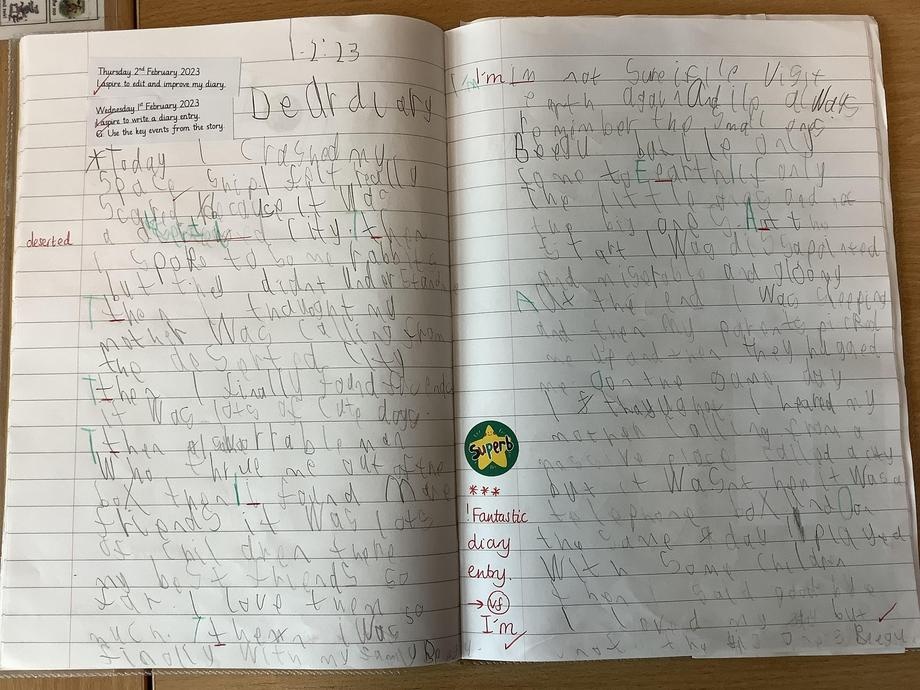 1.2.23
Thursday 2nd February 2023
I aspire to edit and improve my diary.
Wednesday 1st February 2023
I aspire to write a diary entry.
G: Use the key events from the story.
Dear diary
*Today I crashed my
Space Ship. I felt really
Scared because it was
deserted
a city. It
I spoke to some rabbits
but they didnt understand
Then I thought my
mother was calling from
the deserted city
Then I finally found friends
it was lots of cute dogs.
Then a horrable man
who threw me out of the
box then I found more
friends it was lots
of children there
my best friends so
far. I love them so
much. Then I was
finally with my family
I'm Im not Sure if ile visit
earth again And ile always
remember the small ones
Beegu but ile only
come to Earth if only
the little ones and not
the big ones. At the
first I was dissapointed
and misrable and gloomy
At the end I was sleeping
and then my parents picked
me up and then they hugged
me On the same day
I thought I heared my
mother calling from a
place called a city
but it wasnt her it was a
telephone box and On
the same day I played
with Some Children
then I said good bye
I loved my but
Beegu.
Superb
***
! Fantastic
diary
entry.
→ vf
I'm